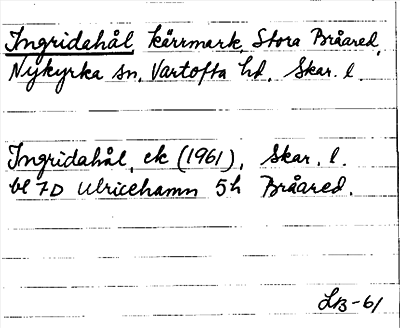 Ingridahål, kärrmark, Stora Bråared,
Nykyrka sn, Vartofta hd, Skar. l.
Ingridahål, ek (1961), Skar. l.
bl 7D Ulricehamn 5h Bråared.
LB-61